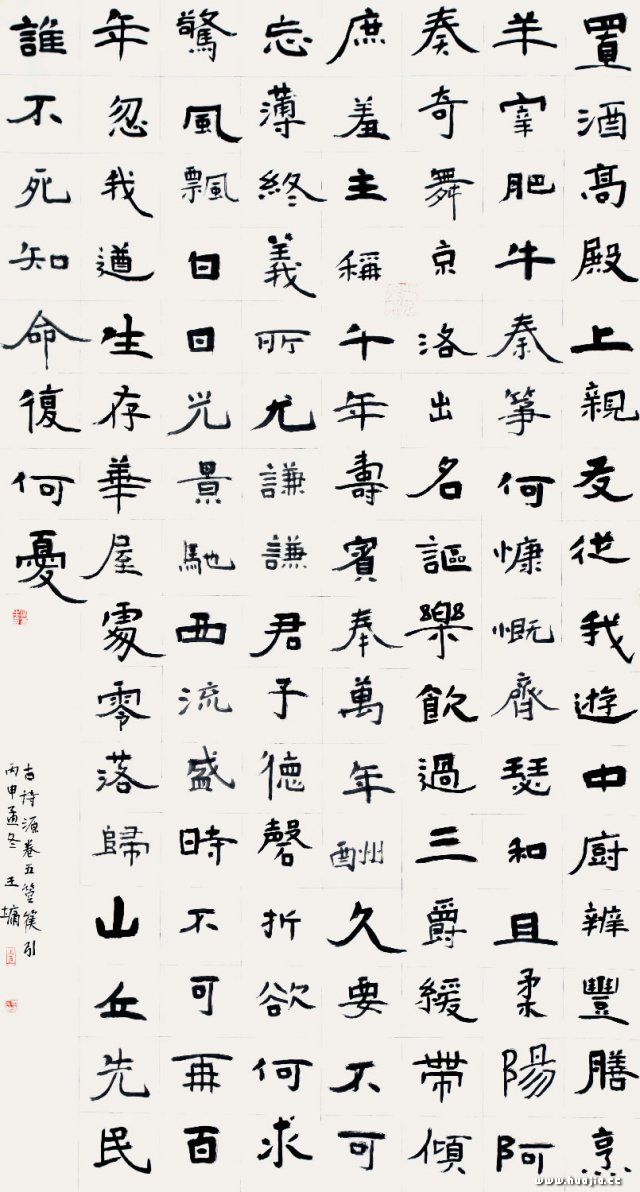 置酒高殿上親友從我遊中廚辨豐膳烹
羊宰肥牛秦箏何慷慨齊瑟和且柔陽阿
奏奇舞京洛出名謳樂飲過三爵緩帶傾
庶羞主稱千年壽賓奉萬年酬久要不可
忘薄終義所尤謙謙君子德磬折欲何求
驚風飄白日光景馳西流盛時不可再百
年忽我遒生存華屋處零落歸山丘先民
誰不死知命復何憂
古詩源卷五箜篌引
丙申孟冬 王墉
www.huajia.cc